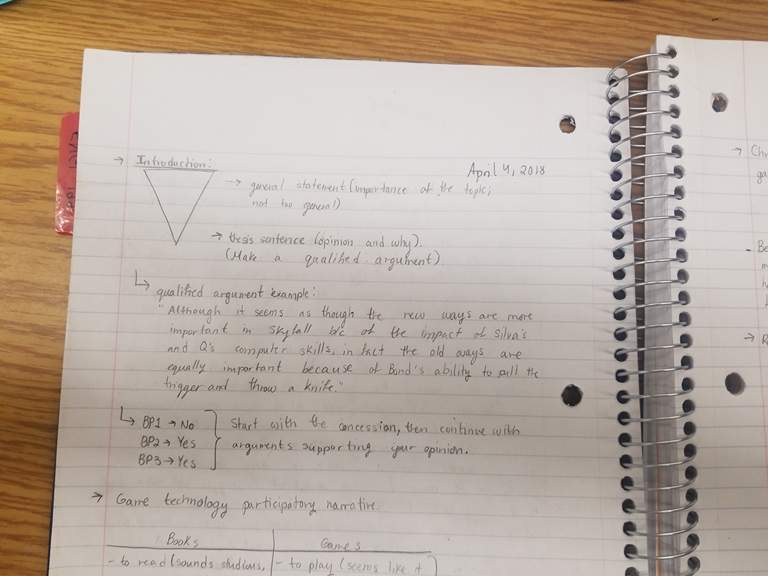 → Introduction:
April 4, 2018
→ general statement (importance of the topic;
not too general)
→ thesis sentence (opinion and why).
(Make a qualified argument)
↳ qualified argument example:
"Although it seems as though the new ways are more
important in Skyfall b/c of the impact of Silva's
and Q's computer skills, in fact the old ways are
equally important because of Bond's ability to pull the
trigger and throw a knife."
↳ BP1 → No
BP2 → Yes
BP3 → Yes
Start with the concession, then continue with
arguments supporting your opinion.
→ Game technology participatory narrative
Books
Games
- to read (sounds studious,
- to play (seems like